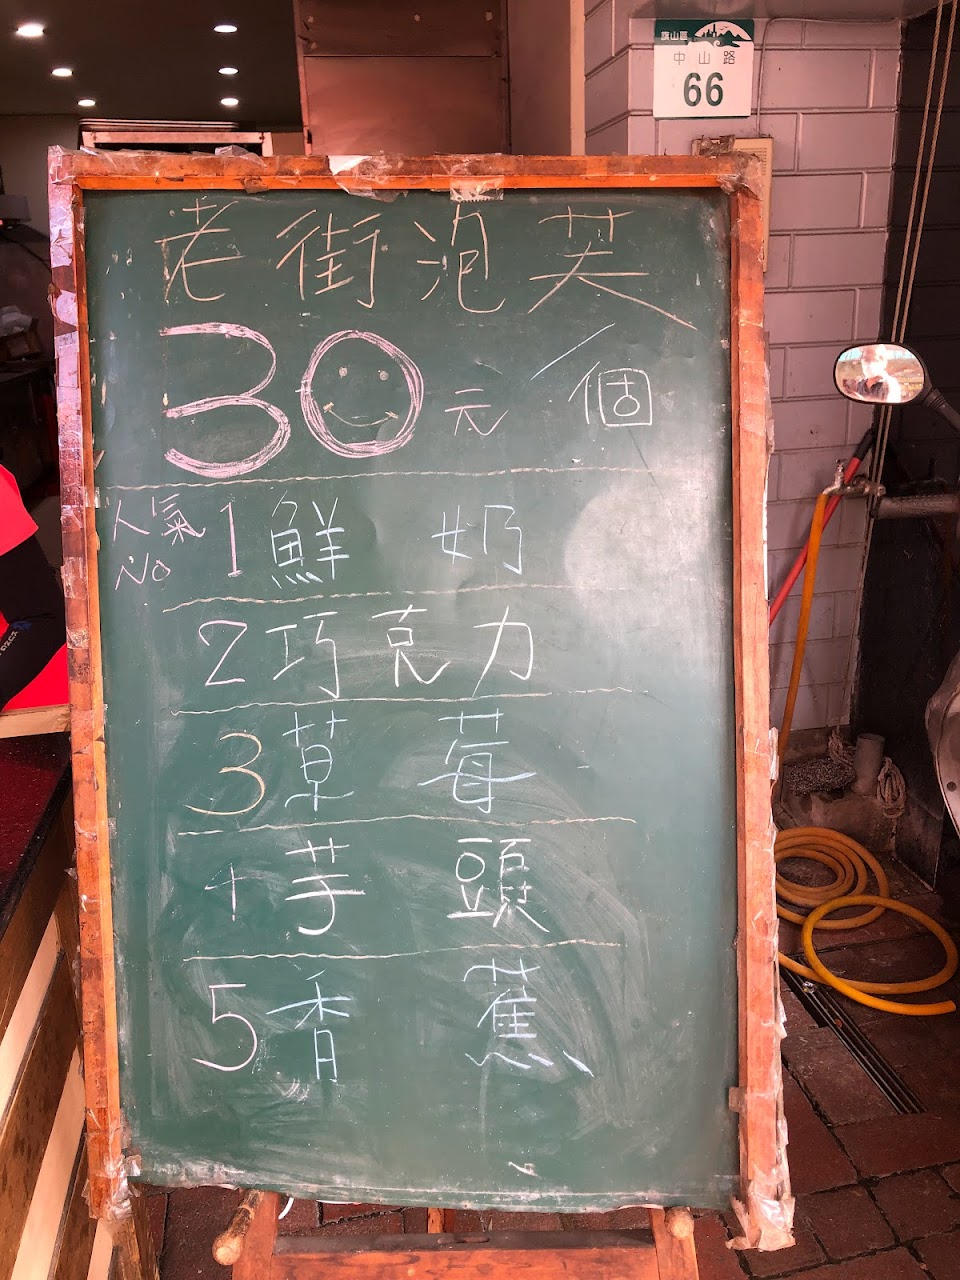 旗山區
中山路
66
老街泡芙
30元/個
人氣No1鮮奶
2巧克力
3草莓
4芋頭
5香蕉